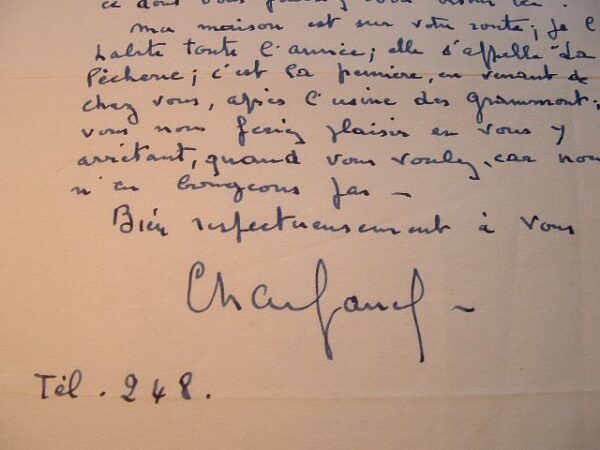 ce dont vous
ma maison est sur votre route; je l
habite toute l'année; elle s'appelle "La
Pêcherie; c'est la première, en venant de
chez vous, après l'usine des Grammont;
vous nous feriez plaisir en vous y
arrêtant, quand vous voulez, car nou
n'en bougeons pas –
Bien respectueusement à vous
Tél. 248.